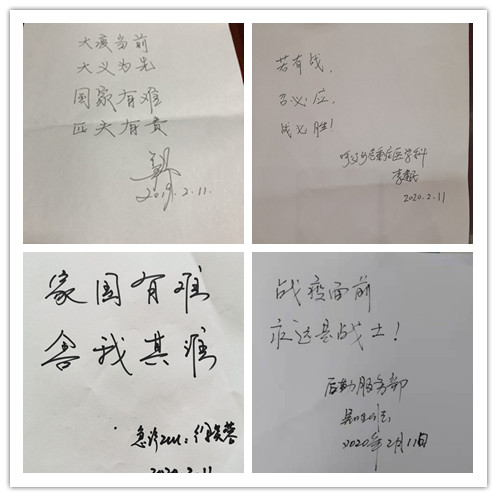 大疫当前
大义为先
国家有难
匹夫有责
2019.2.11.
若有战,
召必应,
战必胜!
呼吸与危重症医学科
2020.2.11
家国有难
舍我其谁
急诊ICU:
2020.2.11
战疫面前
永远是战士!
后勤服务部
2020年2月11日